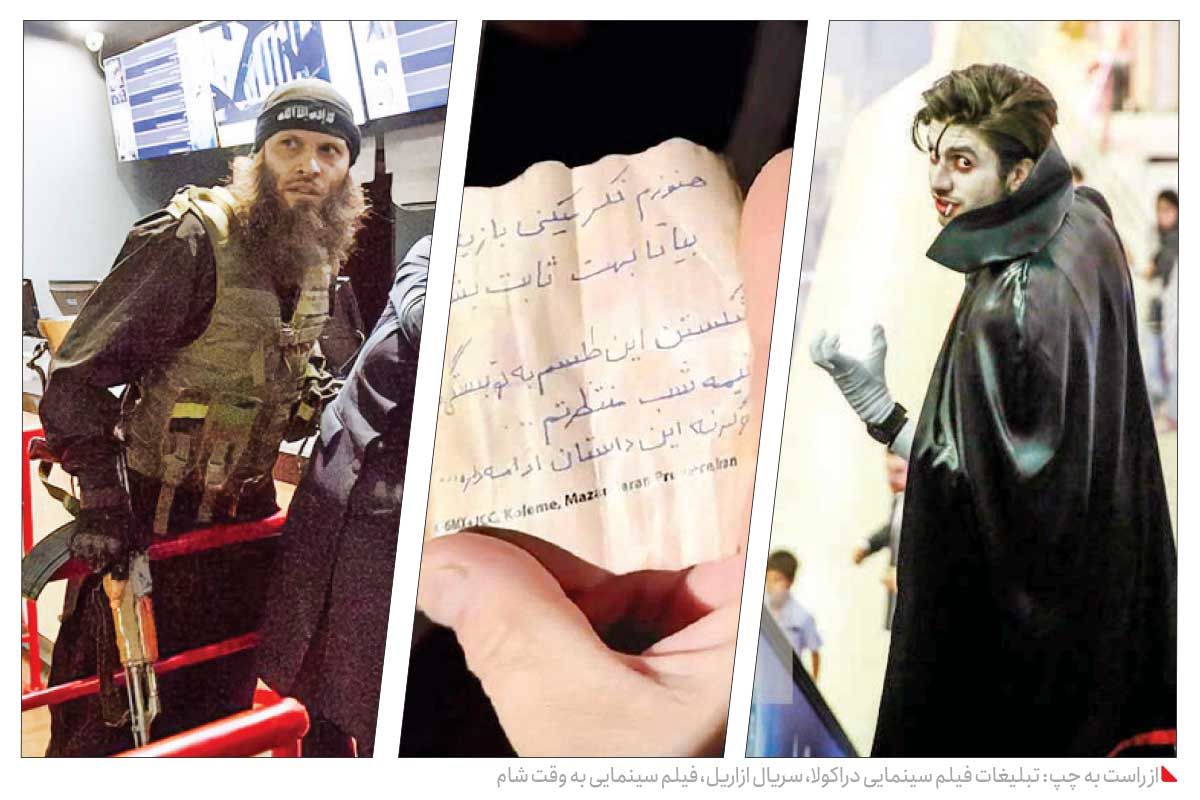 لا اله الا الله
هنوزم فکر میکنی بازیه
بیا تا بهت ثابت بشه
شکستن این طلسم به تو بستگی
نیمه شب منتظرتم ...
وگرنه این داستان ادامه داره ...
Koleme, Mazandaran Province, Iran
از راست به چپ: تبلیغات فیلم سینمایی دراکولا، سریال ازازیل، فیلم سینمایی به وقت شام